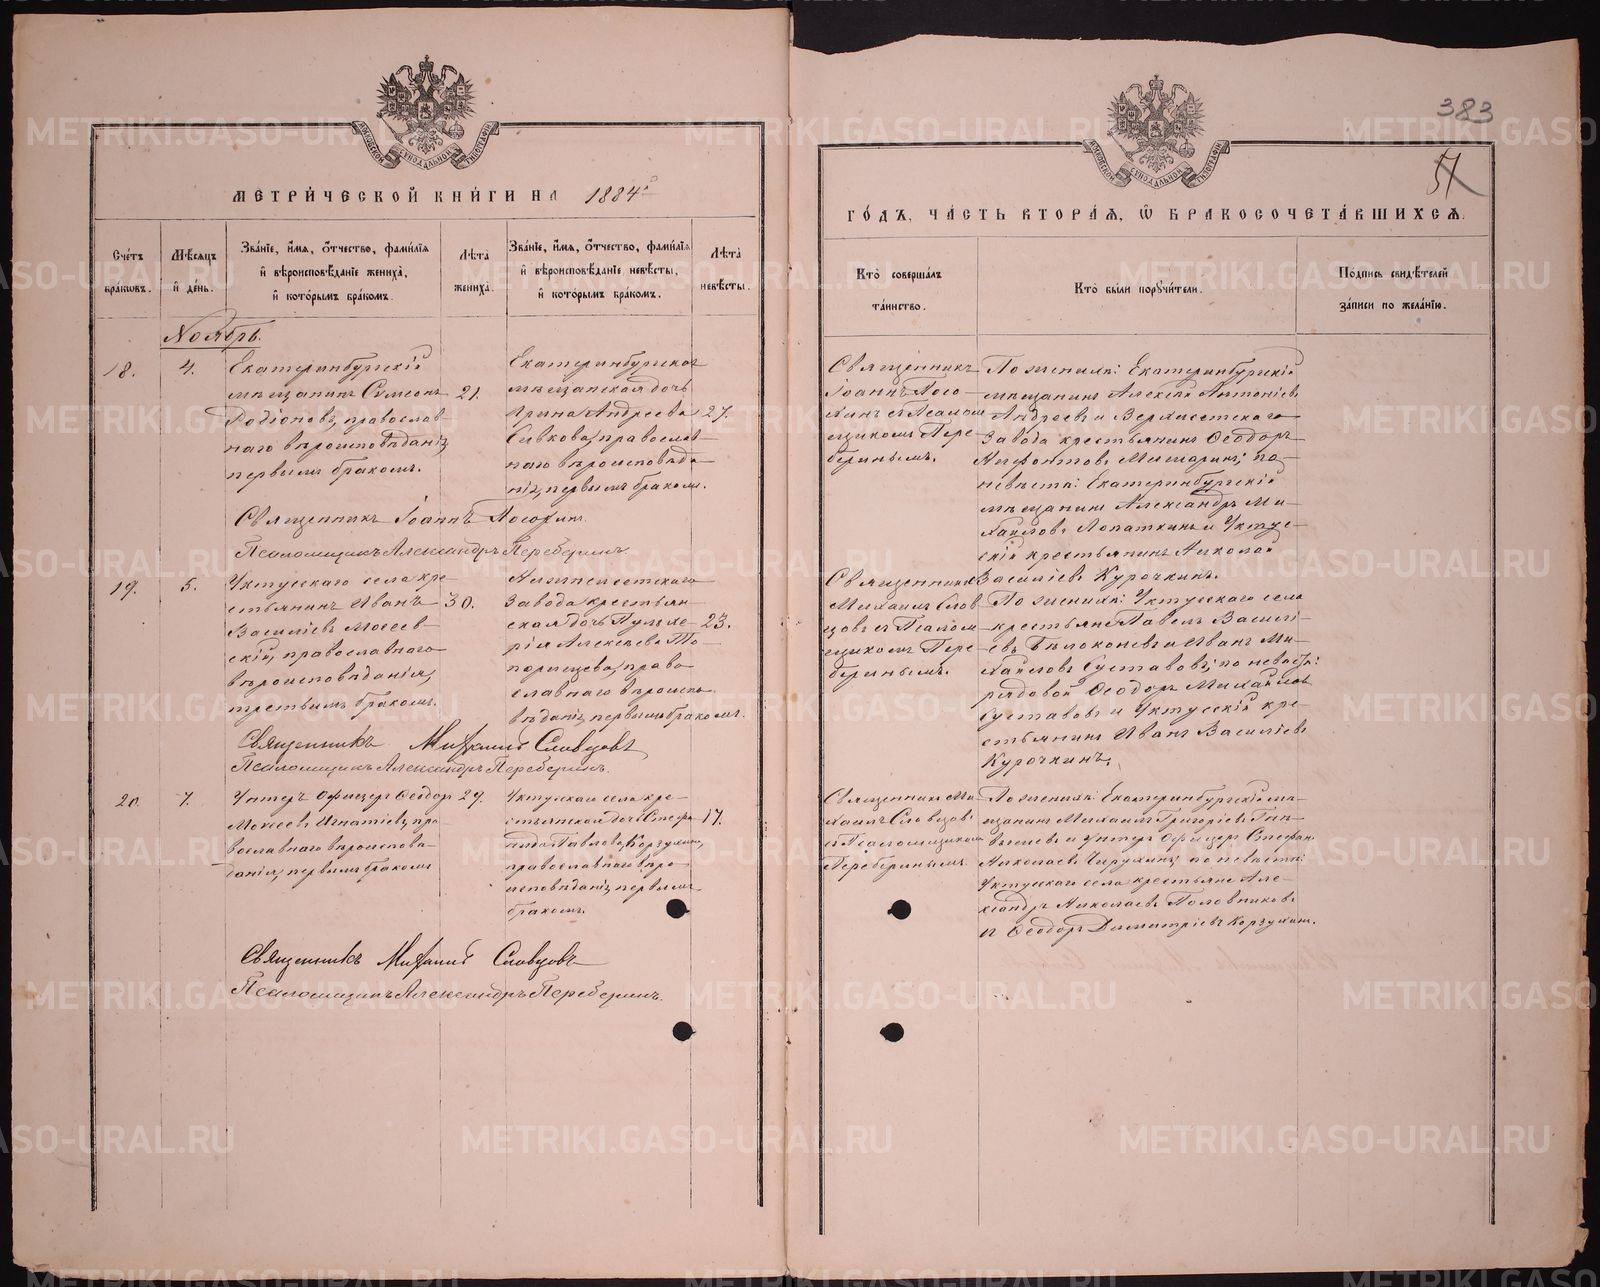 МЕТРИ́ЧЕСКОЙ КНИ́ГИ НА 1884й
Сче́тъ бра́кѡвъ.
Мѣ́сяцъ и́ де́нь.
Зва́нїе, и́мя, ѻ́тчество, фами́лїя и́ вѣроисповѣ́данїе жениха̀, и́ кото́рымъ бра́комъ.
Лѣ́та жениха̀.
Зва́нїе, и́мя, ѻ́тчество, фами́лїя и́ вѣроисповѣ́данїе невѣ́сты, и́ кото́рымъ бра́комъ.
Лѣ́та невѣ́сты.
Ноябрь.
18.
4.
Екатеринбургскій
мѣщанинъ Симеонъ
Родіоновъ, православ-
наго вѣроисповѣданія,
первымъ бракомъ.
21.
Екатеринбургская
мѣщанская дочь
Ирина Андреева
Сивкова, православ-
наго вѣроисповѣда-
нія, первымъ бракомъ.
27.
Священникъ Іоаннъ Посохинъ.
Псаломщикъ Александръ Переберинъ.
19.
5.
Уктусскаго села кре-
стьянинъ Иванъ
Василіевъ Моисев-
скій, православнаго
вѣроисповѣданія,
третьимъ бракомъ.
30.
Нижнеисетскаго
завода крестьян-
ская дочь Пульхе-
рія Алексѣева То-
порищева, право-
славнаго вѣроиспо-
вѣданія, первымъ бракомъ.
23.
Священникъ Михаилъ Словцовъ
Псаломщикъ Александръ Переберинъ.
20.
7.
Унтеръ Офицеръ Ѳеодоръ
Мокеевъ Игнатіевъ, пра-
вославнаго вѣроиспова-
данія, первымъ бракомъ
29.
Уктусскаго села кре-
стьянская дочь Стефа-
нида Павлова Корзухина,
православнаго вѣро-
исповѣданія, первымъ
бракомъ.
17.
Священникъ Михаилъ Словцовъ
Псаломщикъ Александръ Переберинъ.
383
51
ГО́ДЪ, ЧА́СТЬ ВТОРА́Я, Ѡ҆ БРАКОСОЧЕТА́ВШИХСЯ.
Кто̀ соверша́лъ та́инство.
Кто̀ бы́ли порꙋчи́тели.
По́дпись свидѣ́телей за́писи по жела́нїю.
Священникъ
Іоаннъ Посо-
хинъ съ Псалом-
щикомъ Пере-
беринымъ.
По женихѣ: Екатеринбургскій
мѣщанинъ Алексѣй Антоніевъ
Андреевъ и Верхисетскаго
завода крестьянинъ Ѳеодоръ
Нифонтовъ Мишаринъ; по
невѣстѣ: Екатеринбургскій
мѣщанинъ Александръ Ми-
хаиловъ Лопаткинъ и Уктус-
скій крестьянинъ Николай
Василіевъ Курочкинъ.
Священникъ
Михаилъ Слов-
цовъ съ Псалом-
щикомъ Пере-
беринымъ.
По женихѣ: Уктусскаго села
крестьяне Павелъ Василі-
евъ Бѣлоконевъ и Иванъ Ми-
хаиловъ Суставовъ; по невѣстѣ:
рядовой Ѳеодоръ Михаиловъ
Суставовъ и Уктусскій кре-
стьянинъ Иванъ Василіевъ
Курочкинъ.
Священникъ Ми-
хаилъ Словцовъ
съ Псаломщикомъ
Переберинымъ.
По женихѣ: Екатеринбургскій мѣ-
щанинъ Михаилъ Григоріевъ
и Унтеръ Офицеръ Стефанъ
Николаевъ по невѣстѣ:
Уктусскаго села крестьяне Але-
ксандръ Николаевъ Половниковъ
и Ѳеодоръ Димитріевъ Корзухинъ.